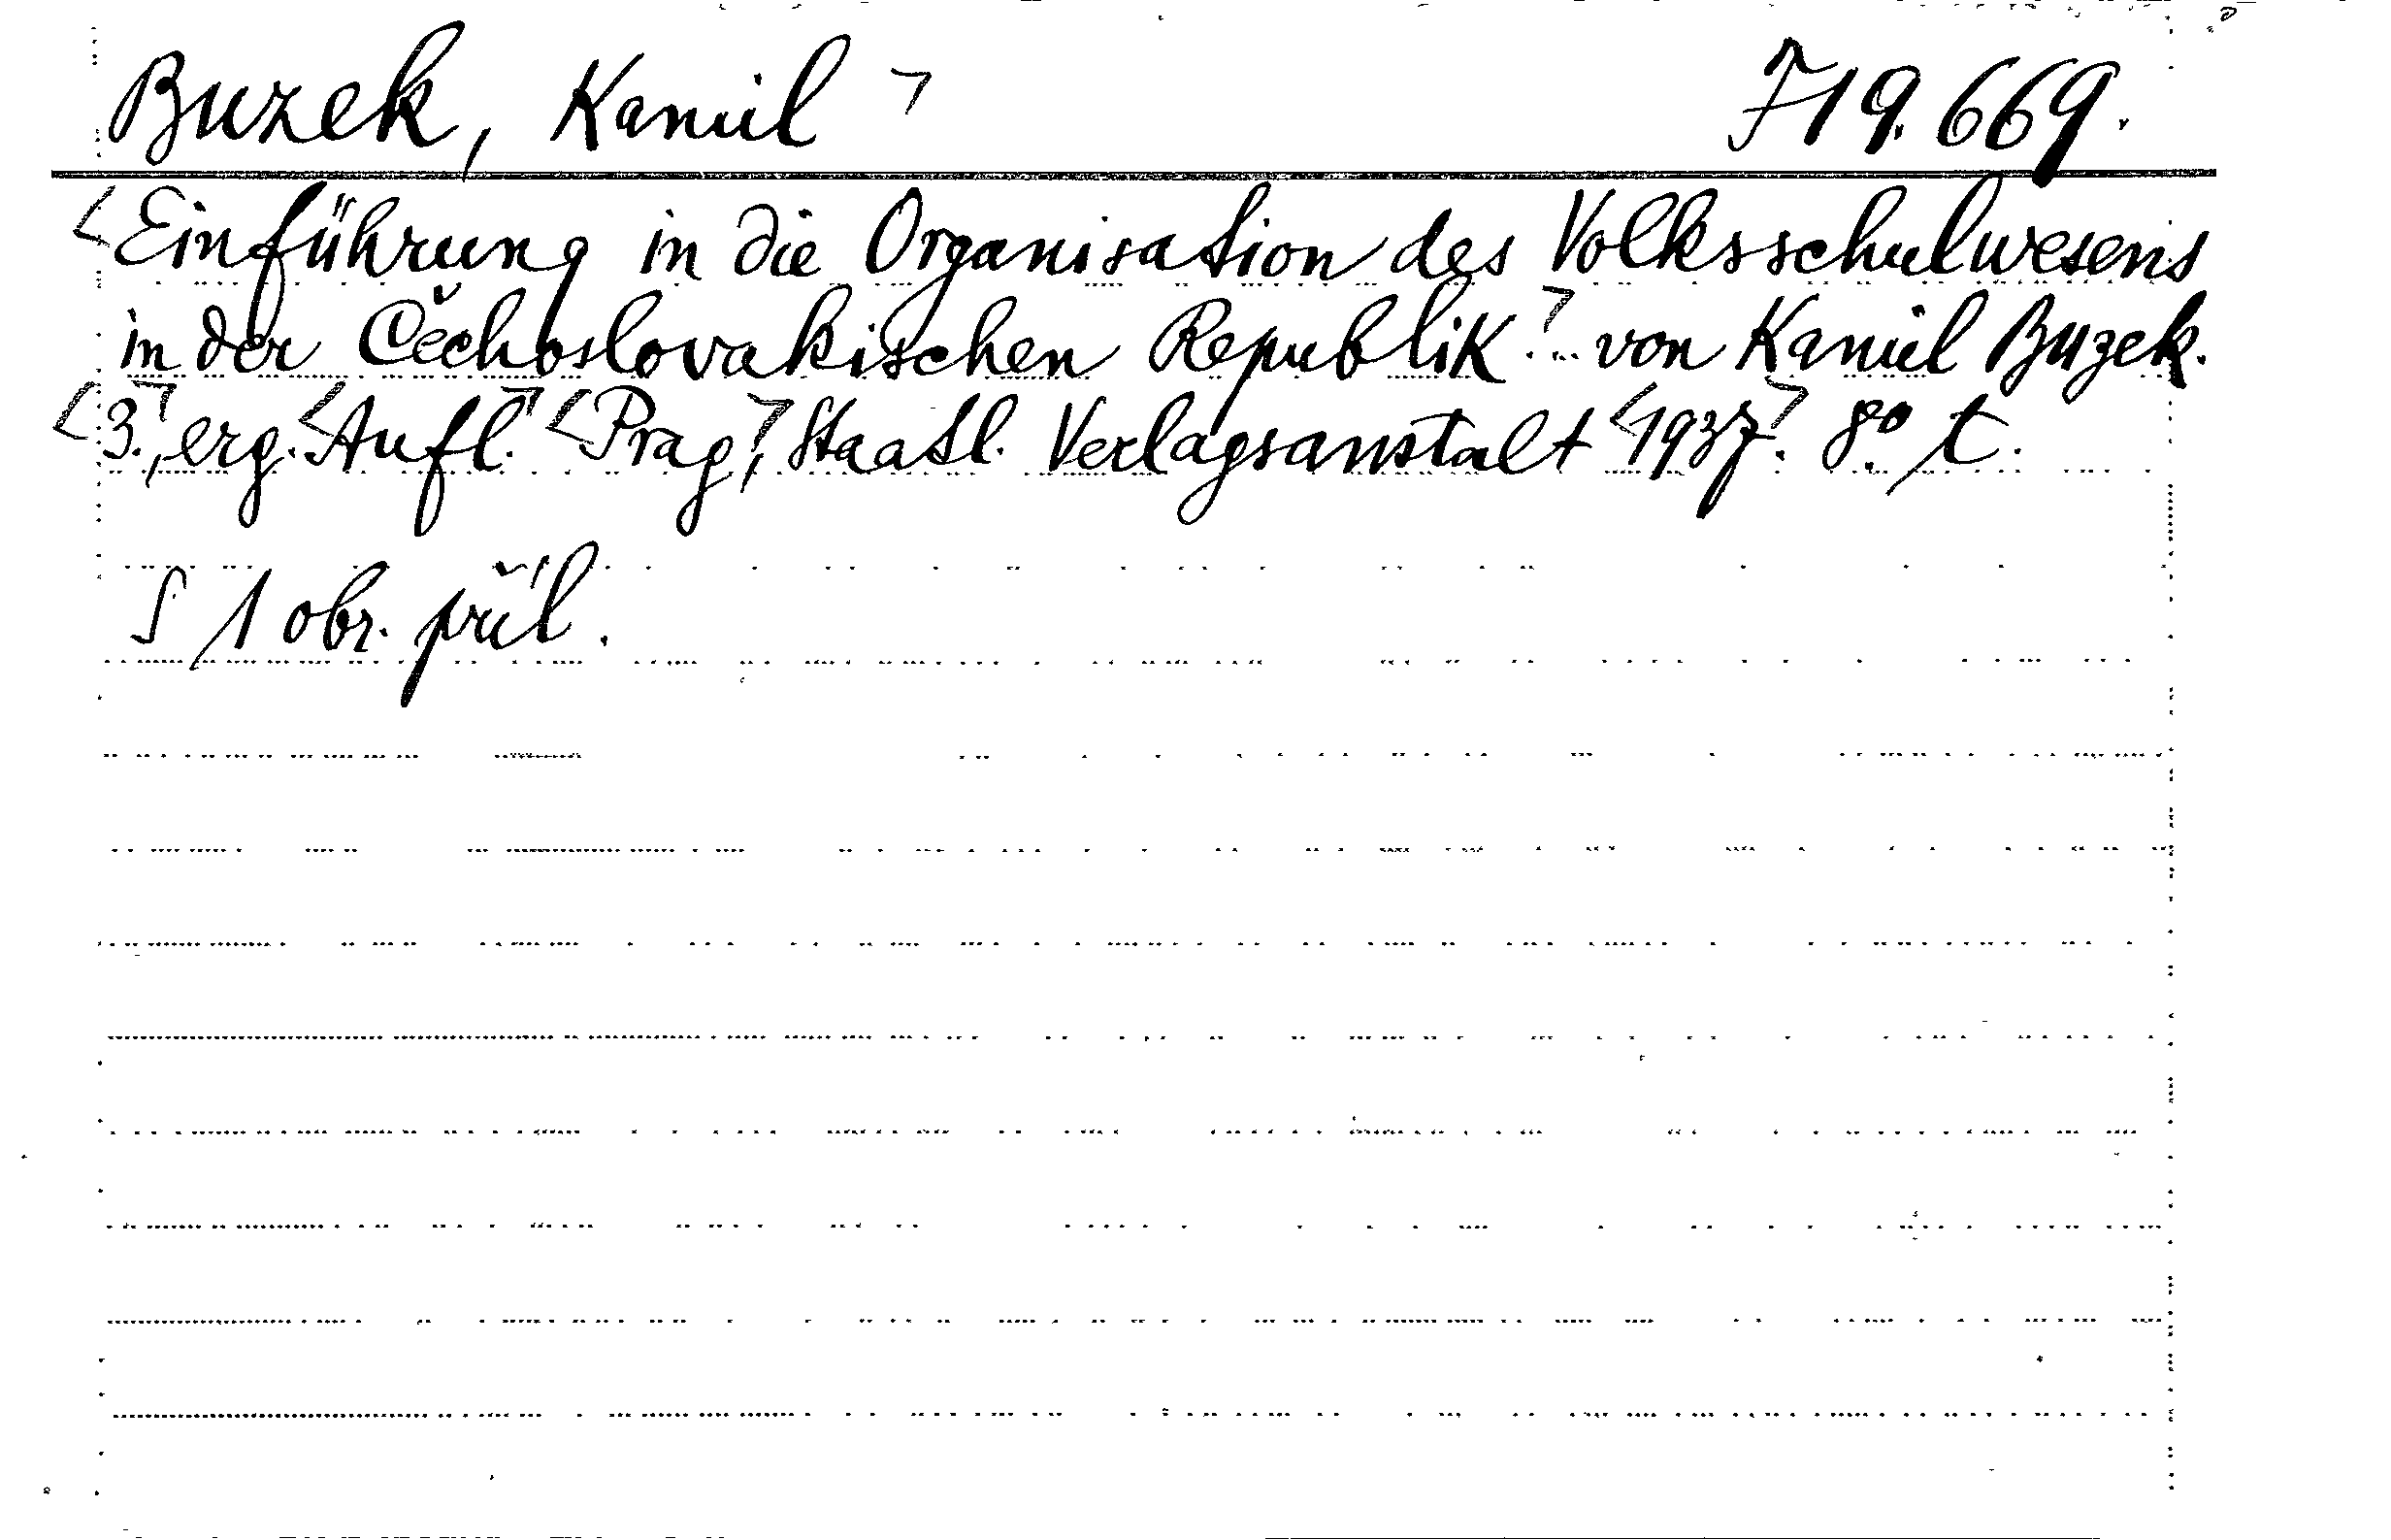 Buzek, Kamil> F 19.669.
<Einführung in die Organisation des Volksschulwesens
in der Čechoslovakischen Republik.> .. von Kamil Buzek.
<3.>, erg. <Aufl.> <Prag>, Staatl. Verlagsanstalt <1937>. 8° t.
S 1 obr. příl.